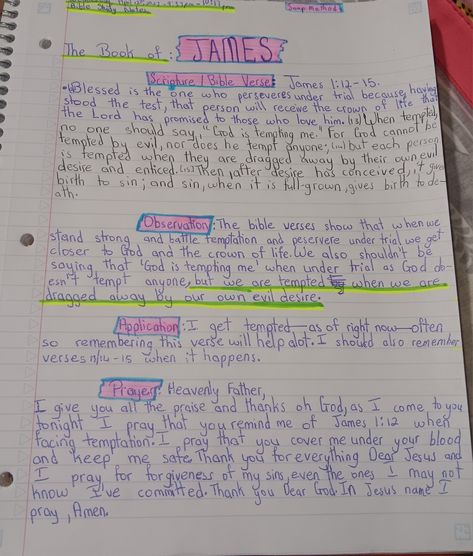 Bible Study Notes
Soap Method
The Book of: JAMES
Scripture / Bible Verse: James 1:12-15.
"Blessed is the one who perseveres under trial because, having
stood the test, that person will receive the crown of life that
the Lord has promised to those who love him. (13) When tempted,
no one should say, "God is tempting me." For God cannot be
tempted by evil, nor does he tempt anyone; (14) but each person
is tempted when they are dragged away by their own evil
desire and enticed. (15) Then, after desire has conceived, it gives
birth to sin; and sin, when it is full-grown, gives birth to de-
ath.
Observation: The bible verses show that when we
stand strong and battle temptation and peservere under trial we get
closer to God and the crown of life. We also shouldn't be
saying, that 'God is tempting me' when under trial as God do-
esn't tempt anyone, but we are tempted by when we are
dragged away by our own evil desire.
Application: I get tempted—as of right now—often
so remembering this verse will help alot. I should also remember
verses 12-15 when it happens.
Prayer: Heavenly Father,
I give you all the praise and thanks oh God, as I come to you
tonight I pray that you remind me of James 1:12 when
facing temptation. I pray that you cover me under your blood
and keep me safe. Thank you for everything Dear Jesus and
I pray for forgiveness of my sins, even the ones I may not
know I've committed. Thank you Dear God. In Jesus name I
pray, Amen.